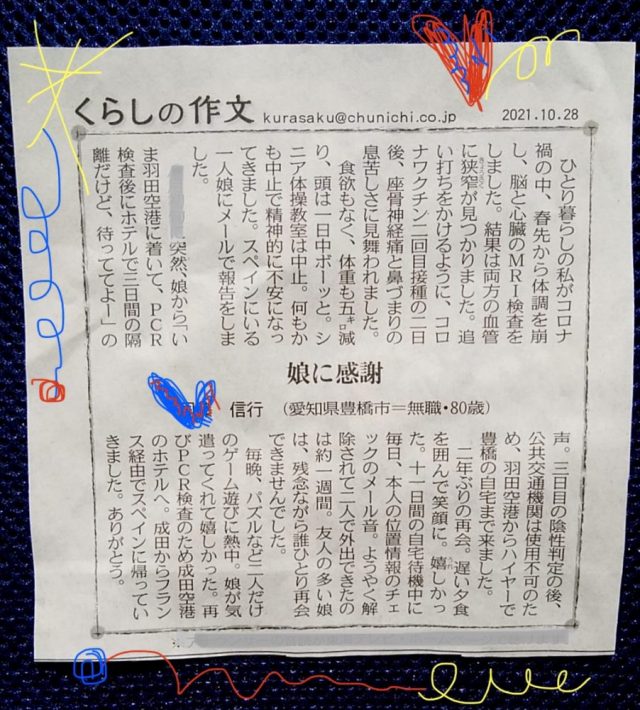 くらしの作文 kurasaku@chunichi.co.jp 2021.10.28
娘に感謝
信行 (愛知県豊橋市=無職・80歳)
ひとり暮らしの私がコロナ
禍の中、春先から体調を崩
し、脳と心臓のMRI検査を
しました。結果は両方の血管
に狭窄が見つかりました。追
い打ちをかけるように、コロ
ナワクチン二回目接種の二日
後、座骨神経痛と鼻づまりの
息苦しさに見舞われました。
食欲もなく、体重も五㌔減
り、頭は一日中ボーッと。シ
ニア体操教室は中止。何もか
も中止で精神的に不安になっ
てきました。スペインにいる
一人娘にメールで報告をしま
した。
突然、娘から「い
ま羽田空港に着いて、PCR
検査後にホテルで三日間の隔
離だけど、待っててよー」の
声。三日目の陰性判定の後、
公共交通機関は使用不可のた
め、羽田空港からハイヤーで
豊橋の自宅まで来ました。
二年ぶりの再会。遅い夕食
を囲んで笑顔に。嬉しかっ
た。十一日間の自宅待機中に
毎日、本人の位置情報のチェ
ックのメール音。ようやく解
除されて二人で外出できたの
は約一週間。友人の多い娘
は、残念ながら誰ひとり再会
できませんでした。
毎晩、パズルなど二人だけ
のゲーム遊びに熱中。娘が気
遣ってくれて嬉しかった。再
びPCR検査のため成田空港
のホテルへ。成田からフラン
ス経由でスペインに帰ってい
きました。ありがとう。